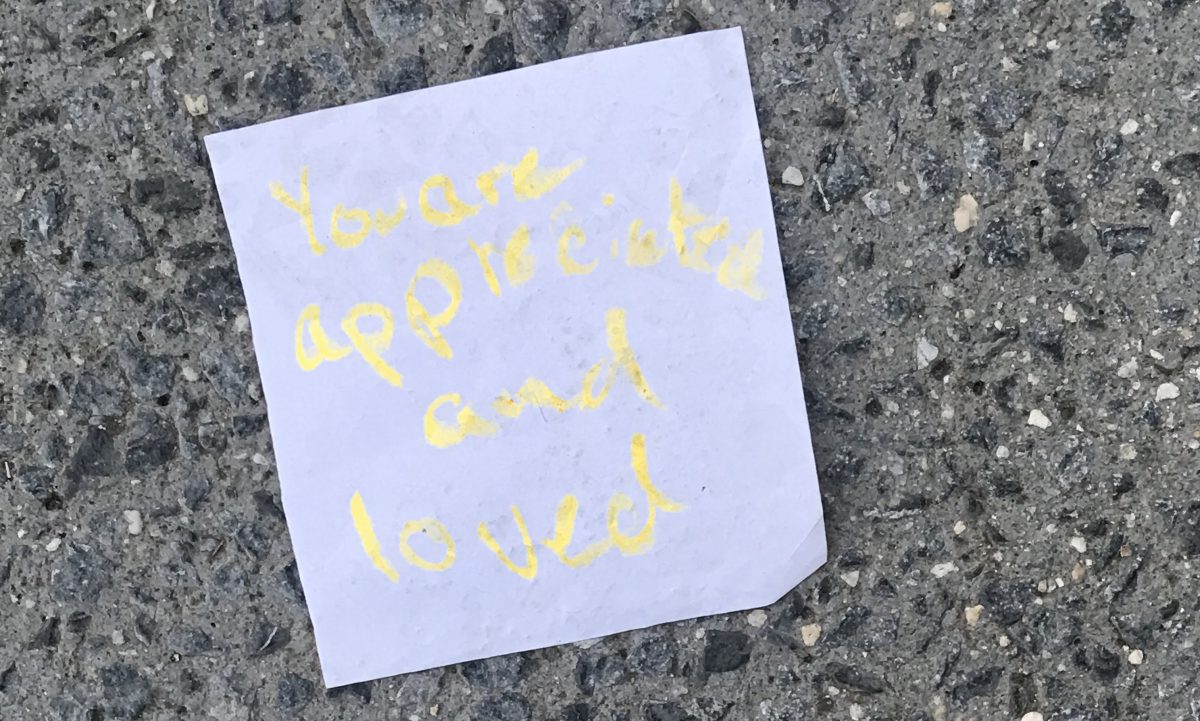 You are
appreciated
and
loved